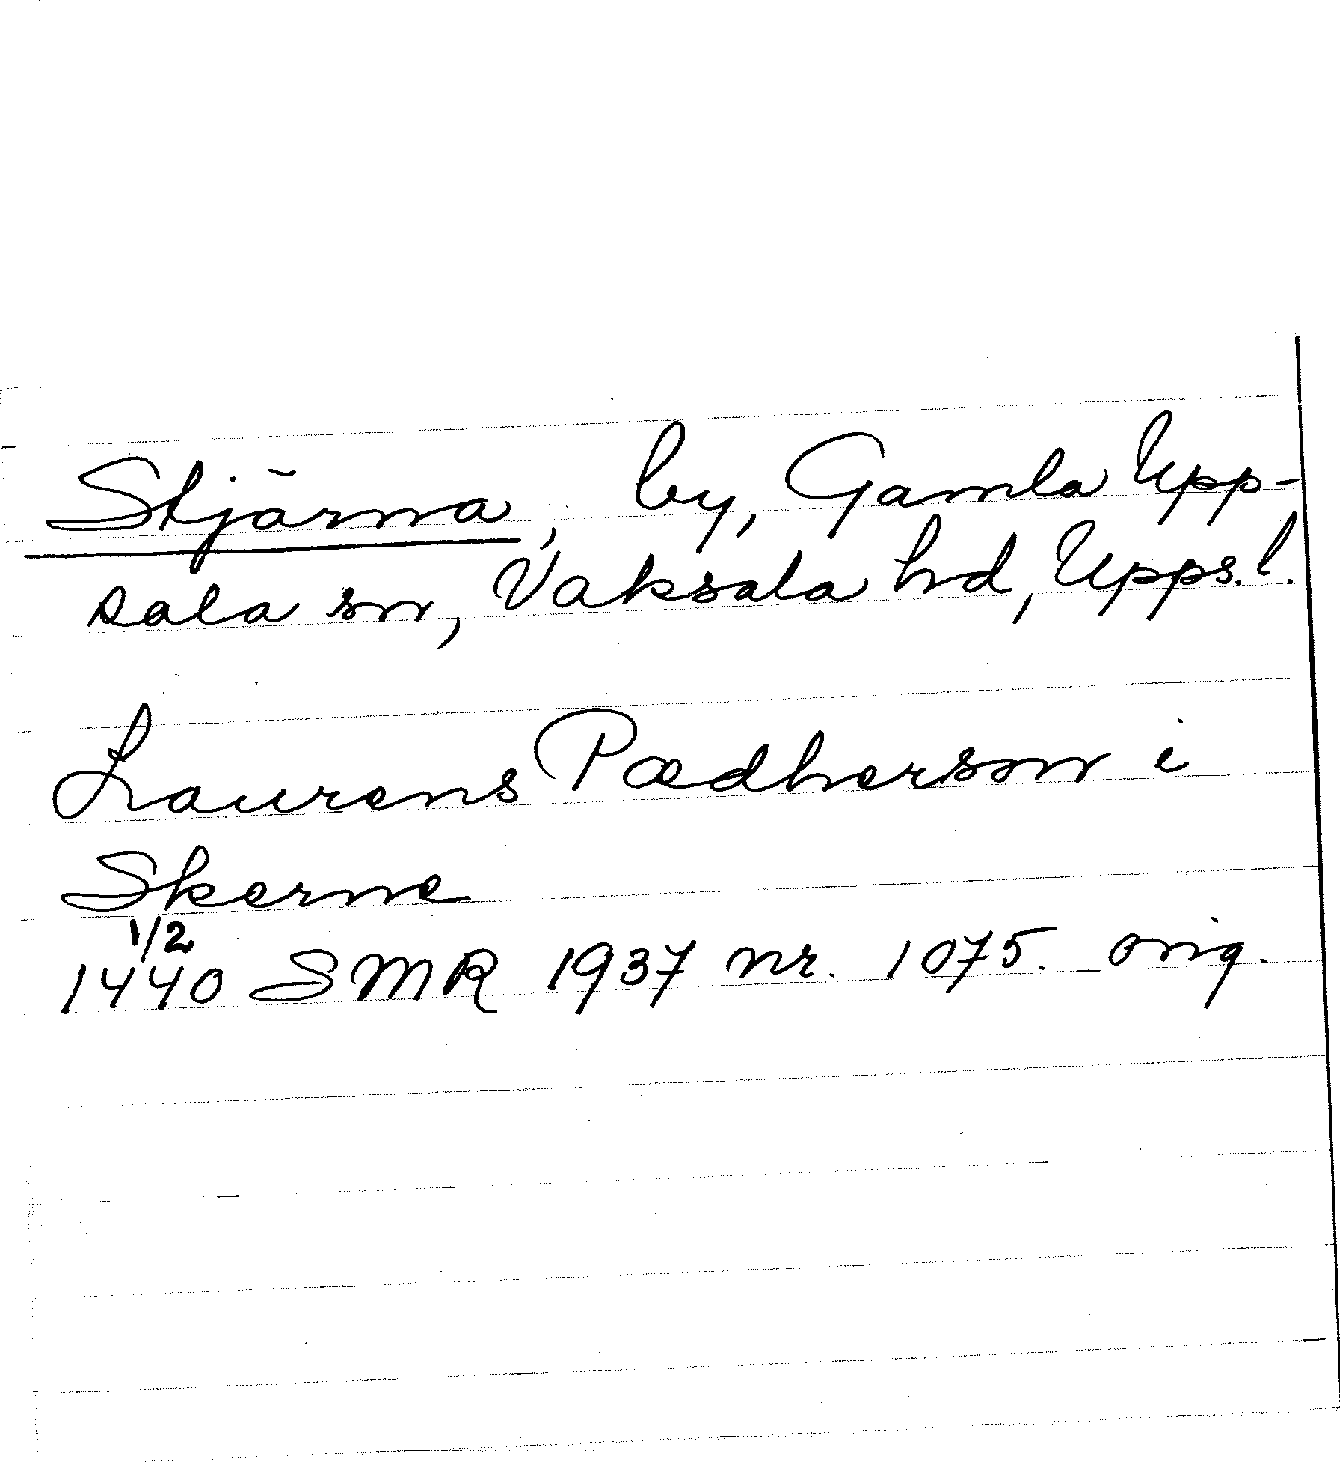 Stjärna, by, Gamla Upp-
sala sn, Vaksala hd, Upps. l.
Laurens Pædherson i
Skerne
1/2
1440 SMR 1937 nr. 1075. orig.